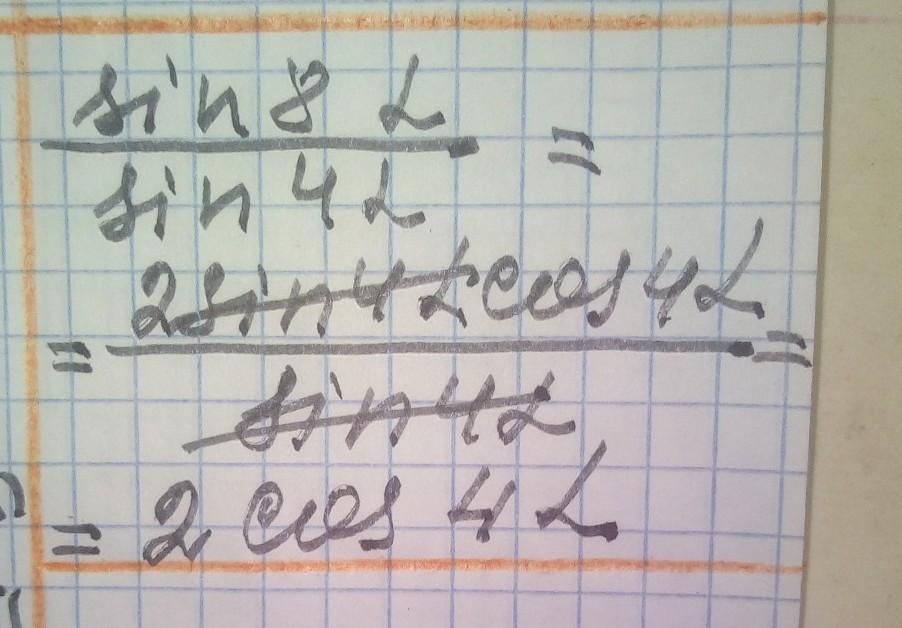 sin 8 α
sin 4 α
=
= 2 sin 4 α cos 4 α =
sin 4 α
= 2 cos 4 α